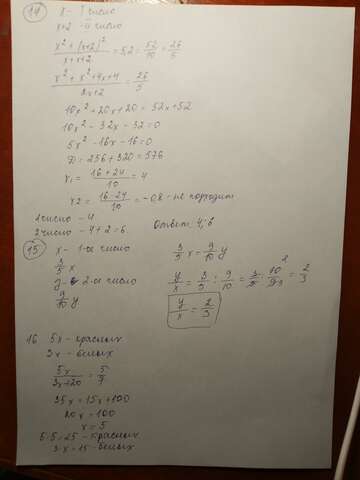 14 x - I число
x+2 - II число
x² + (x+2)² / x+x+2 = 5,2 = 52/10 = 26/5
x² + x² + 4x + 4 / 2x + 2 = 26/5
10x² + 20x + 20 = 52x + 52
10x² - 32x - 32 = 0
5x² - 16x - 16 = 0
D = 256 + 320 = 576
x₁ = 16 + 24 / 10 = 4
x2 = 16 - 24 / 10 = -0,8 - не подходит
1 число - 4
2 число - 4+2=6. Ответ 4; 6
15 x - 1-ое число
3/5 x
y - 2-ое число
9/10 y
3/5 x = 9/10 y
y/x = 3/5 : 9/10 = 3/5 · 10/9 = 2/3
y/x = 2/3
16 5x - красных
3x - белых
5x / 3x+20 = 5/7
35x = 15x + 100
20x = 100
x = 5
5·5=25 - красных
3·x=15 - белых